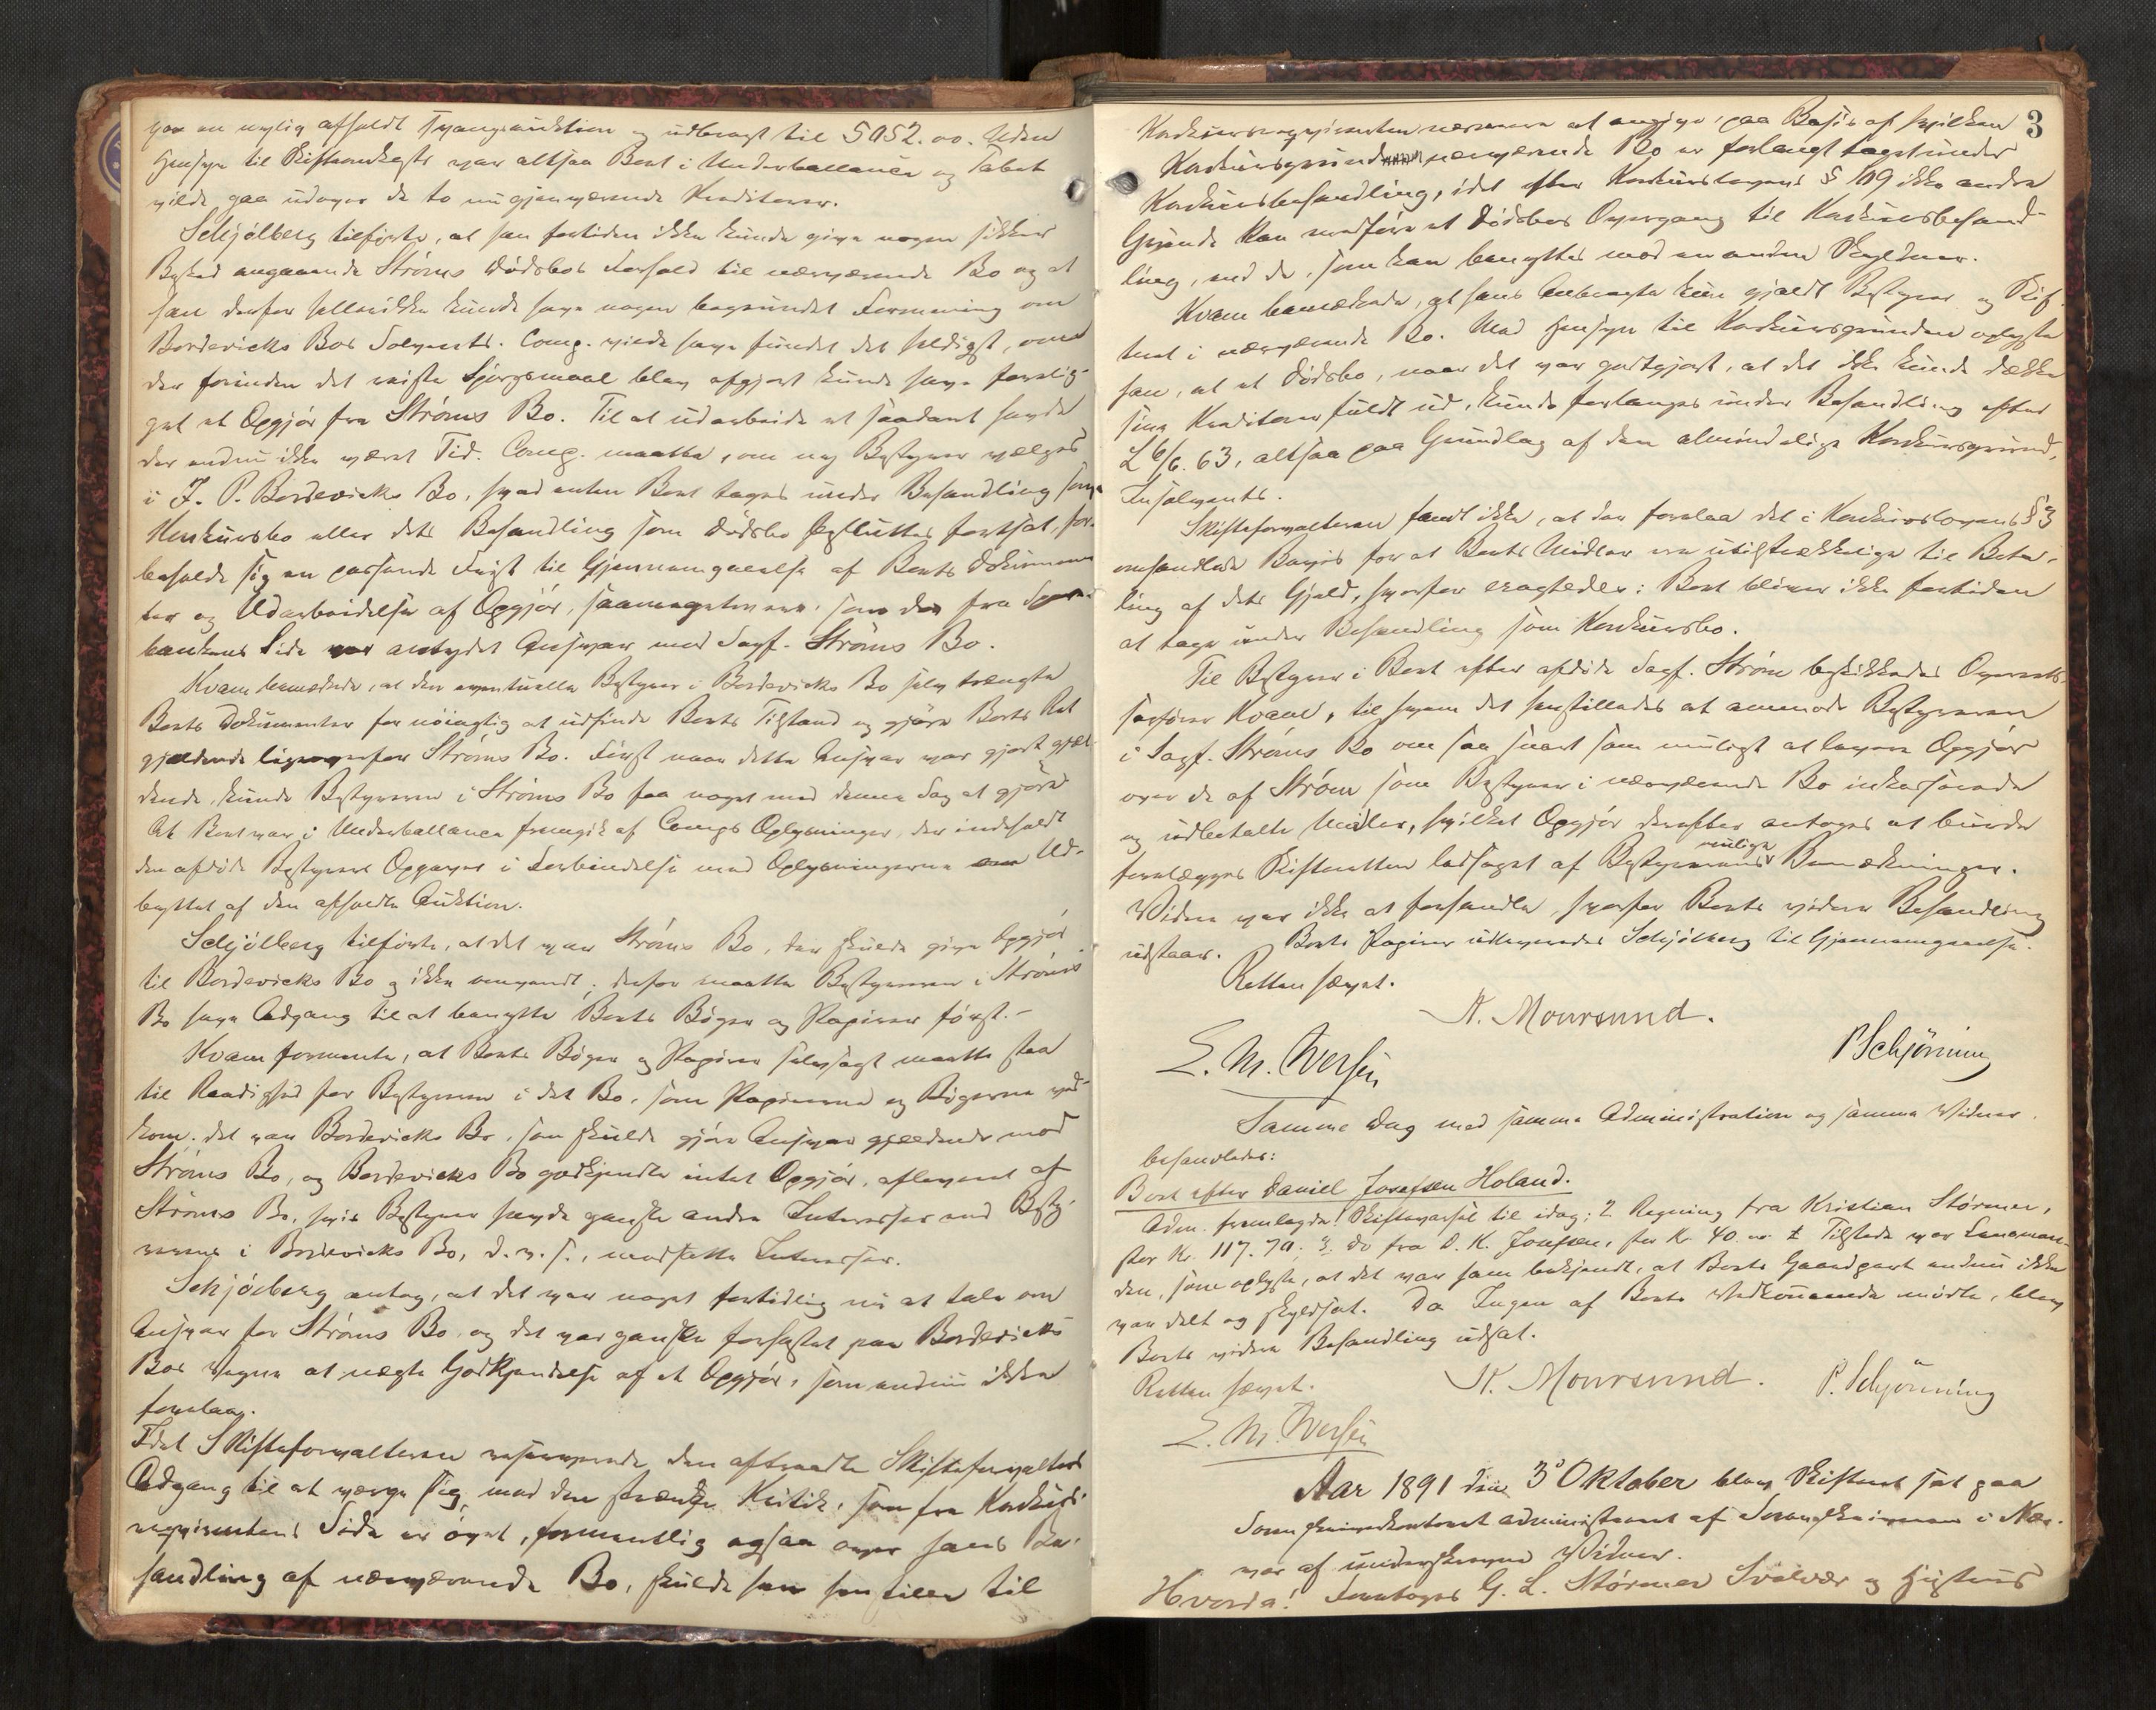 paa en nylig afholdt Tvangsauktion og udbragt til 5052.00. Uden
Hensyn til Skifteomkostn. var altsaa Boet i Underballance og Tabet
vilde gaa udover de to nugjenværende Kreditorer.
Schjølberg tilførte, at han fortiden ikke kunde give nogen sikker
Besked angaaende Strøms Dødsbos Forhold til nærværende Bo og at
han derfor hellerikke kunde have nogen begrundet Formening om
Bordevicks Bos Solvents. Comp. vilde have fundet det heldigst, om
der forinden det reiste Spørgsmaal blev afgjort kunde have forelig-
get et Opgjør fra Strøms Bo. Til at udarbeide et saadant havde
der endnu ikke været Tid. Comp. maatte, om ny Bestyrer vælges
i J. P. Bordevicks Bo, hvad enten Boet tages under Behandling som
Konkursbo eller dets Behandling som Dødsbo besluttes fortsat, for-
beholde sig en passende Frist til Gjennemgaaelse af Boets Dokumen-
ter og Udarbeidelse af Opgjør, saameget mere, som der fra Spare-
bankens Side var antydet Ansvar mod Sagf. Strøms Bo.
Kvam bemærkede, at den eventuelle Bestyrer i Bordevicks Bo selv trængte
Boets Dokumenter for nøiagtig at udfinde Boets Tilstand og gjøre Boets Ret
gjældende ligeoverfor Strøms Bo. Først naar dette Ansvar var gjort gjæl-
dende, kunde Bestyreren i Strøms Bo faa noget med denne Sag at gjøre
At Boet var i Underballance fremgik af Comps Oplysninger, der indeholdt
den afdøde Bestyrers Opgaver i Forbindelse med Oplysningerne om Ud-
byttet af den afholdte Auktion.
Schjølberg tilførte, at det var Strøms Bo, der skulde give Opgjør
til Bordevicks Bo og ikke omvendt; derfor maatte Bestyreren i Strøms
Bo have Adgang til at benytte Boets Bøger og Papirer først.-
Kvam formente, at Boets Bøger og Papirer selvsagt maatte staa
til Raadighed for Bestyreren i det Bo, som Papirerne og Bøgerne ved-
kom. Det var Bordevicks Bo, som skulde gjøre Ansvar gjældende mod
Strøms Bo, og Bordevicks Bo godkjendte intet Opgjør, afleveret af
Strøms Bo, hvis Bestyrer havde ganske andre Interesser end Besty-
reren i Bordevicks Bo, d. v. s., modsatte Interesser.
Schjølberg antog, at det var noget fortidlig nu at tale om
Ansvar for Strøms Bo, og det var ganske forhastet paa Bordevicks
Bos Vegne at nægte Godkjendelse af et Opgjør, som endnu ikke
forelaa.
Idet Skifteforvalteren reserverede den aftraadte Skifteforvalter
Adgang til at værge sig mod den strænge Kritik, som fra Konkurs-
reqvirentens Side er øvet, formentlig ogsaa over hans Be-
handling af nærværende Bo, skulde han henstille til
3
Konkursreqvirenten nærmere at angive, paa Basis af hvilken
Konkursgrund nærværende Bo er forlangt taget under
Konkursbehandling, idet efter Konkurslovens § 109 ikke andre
Grunde kan medføre et Dødsbos Overgang til Konkursbehand-
ling, end de, som kan benyttes mod en anden Skyldner.
Kvam bemærkede, at hans Anbragte kun gjaldt Bestyrer og Skif-
teret i nærværende Bo. Med Hensyn til Konkursgrunden oplyste
han, at et Dødsbo, naar det var godtgjort, at det ikke kunde dække
sine Kreditorer fuldt ud, kunde forlanges under Behandling efter
L 6/6. 63, altsaa paa Grundlag af den almindelige Konkursgrund,
Insolvents.
Skifteforvalteren fandt ikke, at der forelaa det i Konkurslovens § 3
omhandlede Bevis for at Boets Midler ere utilstrækkelige til Beta-
ling af dets Gjæld, hvorfor eragtedes: Boet bliver ikke fortiden
at tage under Behandling som Konkursbo.
Til Bestyrer i Boet efter afdøde Sagf. Strøm beskikkedes Overrets-
sagfører Kvam, til hvem det henstilledes at anmode Bestyreren
i Sagf. Strøms Bo om saa snart som muligt at levere Opgjør
over de af Strøm som Bestyrer i nærværende Bo inkasserede
og udbetalte Midler, hvilket Opgjør derefter antoges at burde
forelægges Skifteretten ledsaget af Bestyrerens mulige Bemærkninger.
Videre var ikke at forhandle, hvorfor Boets videre Behandling
udstaar. Boets Papirer udleveredes Schjølberg til Gjennemgaaelse.
Retten hævet.
K. Moursund.
E. M. Iversen
P Schjønning
Samme Dag med samme Administration og samme Vidner
behandledes:
Boet efter Daniel Josefsen Holand.
Adm. fremlagde: Skiftevarsel til idag; 2. Regning fra Kristian Størmer,
stor Kr. 117.70. 3. do fra D. K. Josefsen, stor Kr. 40.00. Tilstede var Lensman-
den, som oplyste, at det var ham bekjendt, at Boets Gaardpart endnu ikke
var delt og skyldsat. Da Ingen af Boets Vedkommende mødte, blev
Boets videre Behandling udsat.
Retten hævet.
K. Moursund.
P. Schjønning
E. M. Iversen
Aar 1891 den 3 Oktober blev Skifteret sat paa
Sorenskriverkontoret administreret af Sorenskriveren i Nær-
vær af underskrevne Vidner.
Hvorda: Foretoges G. L. Størmer Svolvær og Hustrus